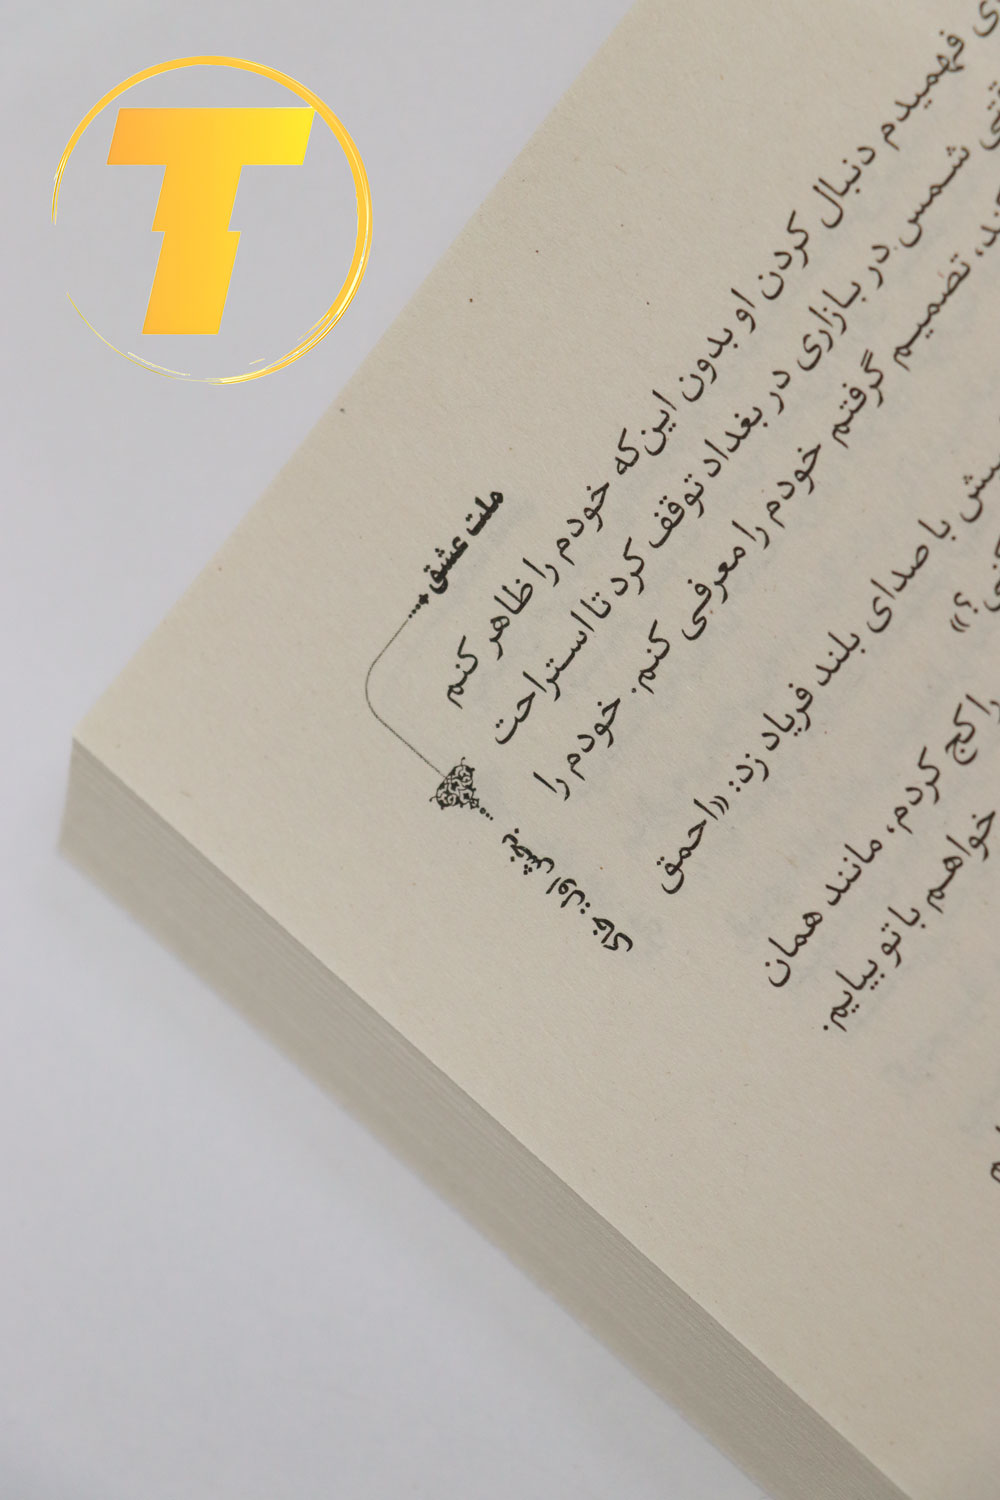 T
ملت عشق
بخش اول: خاک
فهمیدم دنبال کردن او بدون این‌که خودم را ظاهر کنم
شمس در بازاری در بغداد توقف کرد تا استراحت
تصمیم گرفتم خودم را معرفی کنم. خودم را
با صدای بلند فریاد زد: «احمق
را کج کردم، مانند همان
خواهم با تو بیایم.